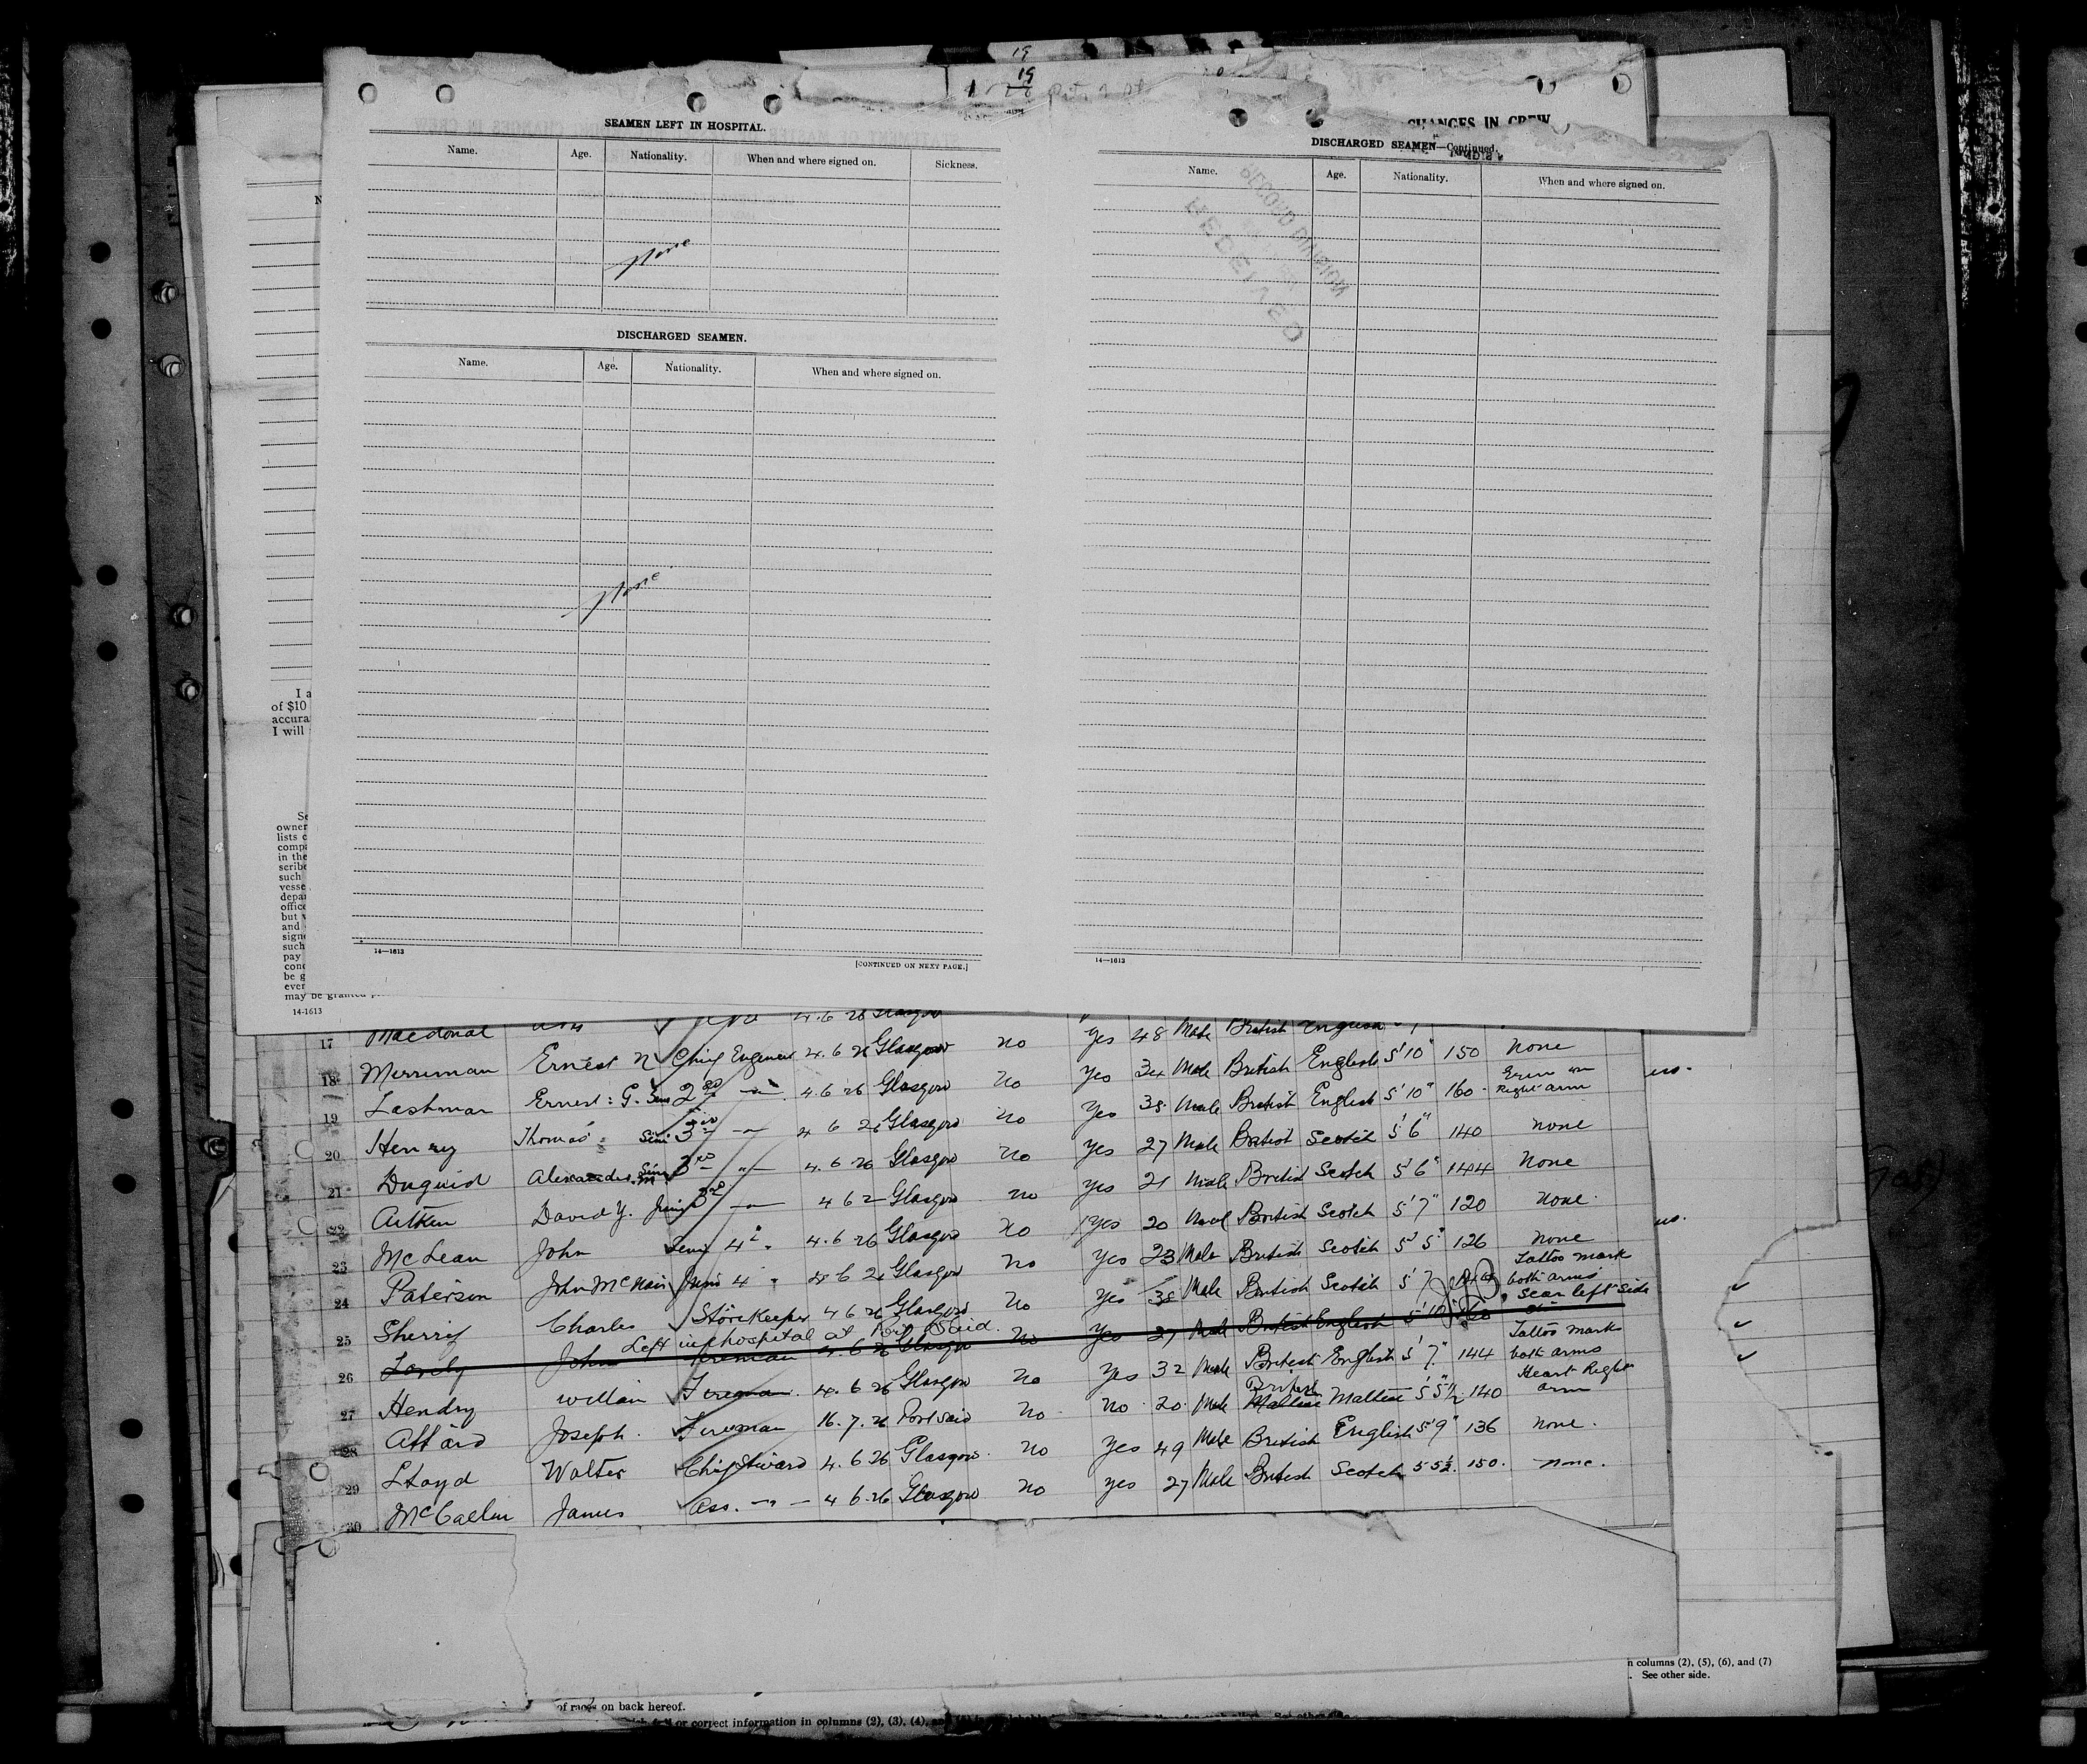 19
19
CHANGES IN CREW
SEAMEN LEFT IN HOSPITAL.
Name. Age. Nationality. When and where signed on. Sickness.
None
DISCHARGED SEAMEN.
Name. Age. Nationality. When and where signed on.
None
14—1613
[CONTINUED ON NEXT PAGE.]
DISCHARGED SEAMEN—Continued.
Name. Age. Nationality. When and where signed on.
SECOND DIVISION
RECEIVED
14—1613
N
I a
of $10
accura
I will
Se
owner
lists c
comp
in the
scribe
such
vesse
depar
office
but v
and
signe
such
pay
conc
be g
ever
may be granted p
14-1613
17 Macdonal 4.6 26 Glasgow Yes 48 Male British English
18 Merriman Ernest N Chief Engineer 4.6 26 Glasgow no Yes 34 Male British English 5'10" 150 None
19 Lashmar Ernest: G. Senr 2nd 4.6 26 Glasgow No Yes 38 Male British English 5'10" 160 Right arm
20 Henry Thomas Senr 3rd 4 6 26 Glasgow No Yes 27 Male British Scotch 5'6" 140 none
21 Duguid Alexander. M Senr 3rd 4.6 26 Glasgow No Yes 21 Male British Scotch 5'6" 144 None
22 Aitken David Y. Junr 3rd 4 6 2 Glasgow no Yes 20 Male British Scotch 5'7" 120 none.
23 McLean John Senr 4th 4.6 26 Glasgow No Yes 23 Male British Scotch 5'5" 126 none
24 Paterson John McNair Junr 4 4 6 26 Glasgow No Yes 38 Male British Scotch 5'7 Tattoo mark both arms
25 Sherrif Charles Storekeeper 4 6 26 Glasgow No Yes 27 Male British English 5'10 scar left side
Left in hospital at Port Said.
26 John Fireman 4.6 26 Glasgow No Yes 32 Male British English 5'7" 144 Tattoo mark both arms
27 Hendry William Fireman 4.6 26 Glasgow No No 20 Male British Maltese Maltese 5'5½ 140 Heart Right arm
28 Attard Joseph. Fireman 16.7.26 Port Said No Yes 49 Male British English 5'9" 136 none.
29 Lloyd Walter Chief Steward 4.6 26 Glasgow. No Yes 27 Male British Scotch 5 5½. 150. none.
30 McCallum James Ass. 4 6.26 Glasgow No
n columns (2), (5), (6), and (7)
. See other side.
of races on back hereof.
or correct information in columns (2), (3), (4), an